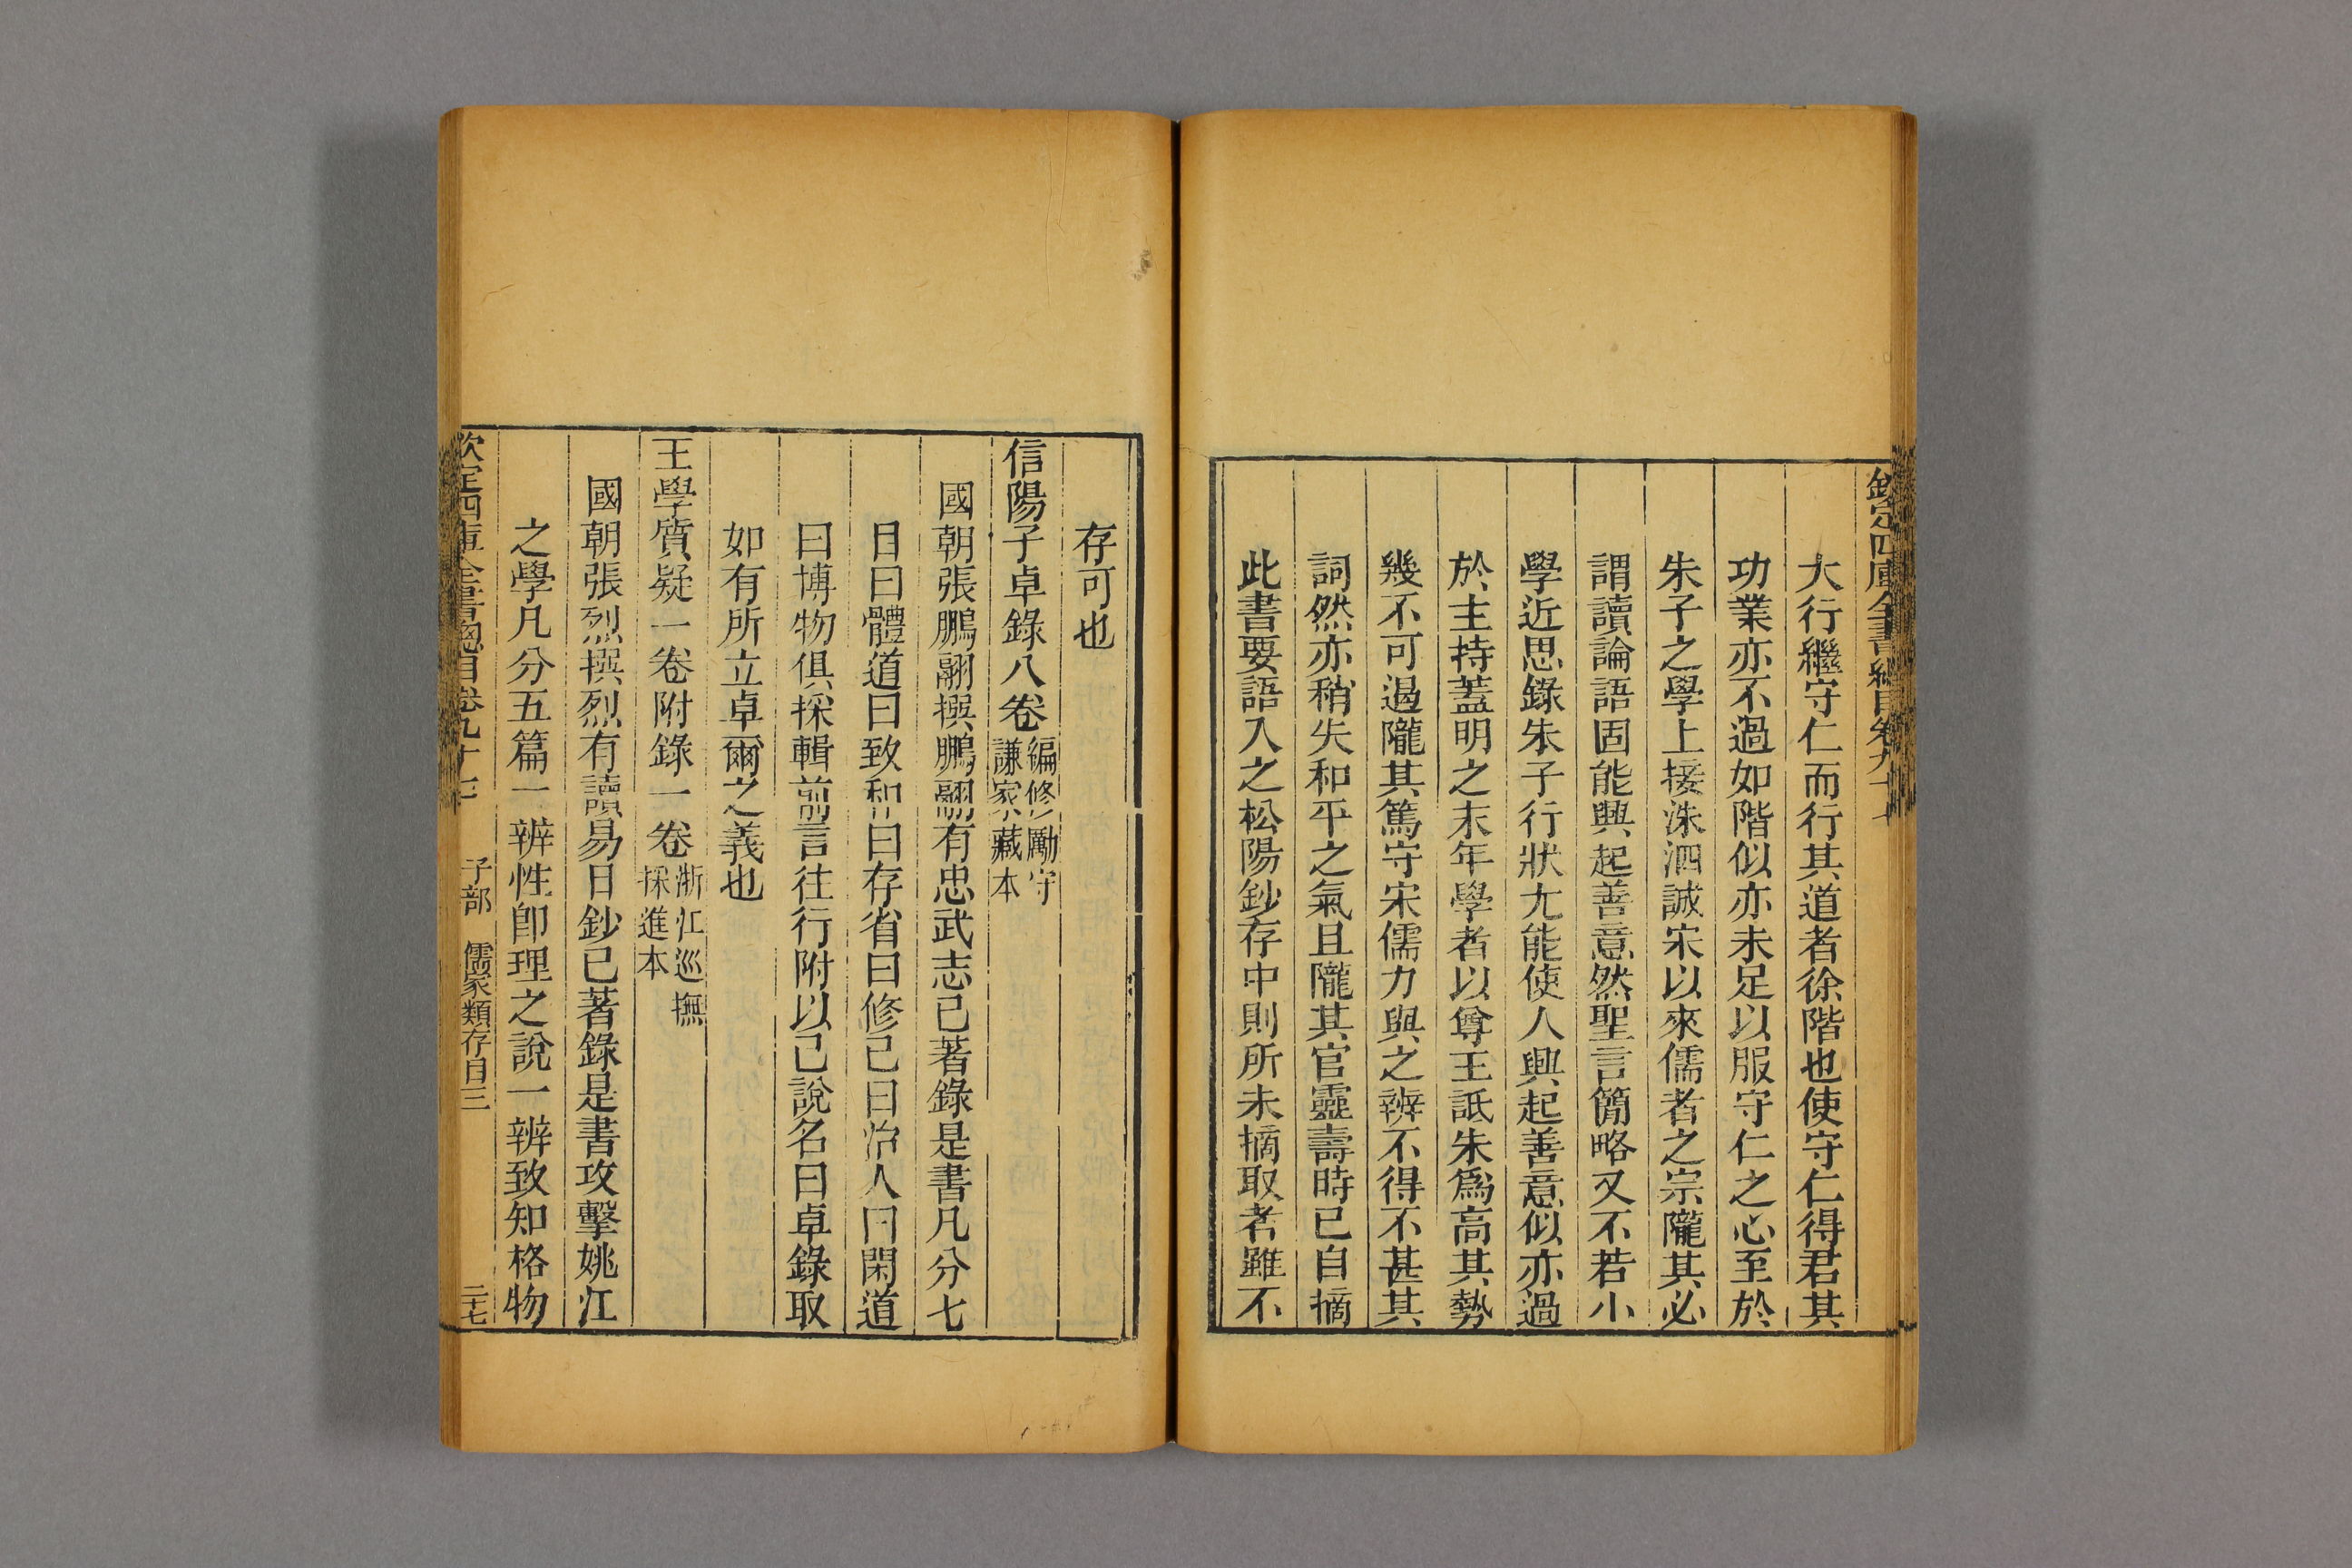 欽定四庫全書總目卷九十七
大行繼守仁而行其道者徐階也使守仁得君其
功業亦不過如階似亦未足以服守仁之心至於
朱子之學上接洙泗誠宋以來儒者之宗隴其必
謂讀論語固能興起善意然聖言簡略又不若小
學近思錄朱子行狀尤能使人興起善意似亦過
於主持蓋明之末年學者以尊王詆朱爲高其勢
幾不可遏隴其篤守宋儒力與之辨不得不甚其
詞然亦稍失和平之氣且隴其官靈壽時已自摘
此書要語入之松陽鈔存中則所未摘取者雖不
存可也
信陽子卓錄八卷編修勵守謙家藏本
國朝張鵬翮撰鵬翮有忠武志已著錄是書凡分七
目曰體道曰致和曰存省曰修己曰治人曰閑道
曰博物俱採輯前言往行附以己說名曰卓錄取
如有所立卓爾之義也
王學質疑一卷附錄一卷浙江巡撫採進本
國朝張烈撰烈有讀易日鈔已著錄是書攻擊姚江
之學凡分五篇一辨性卽理之說一辨致知格物
欽定四庫全書總目卷九十七 子部 儒家類存目三 二十七